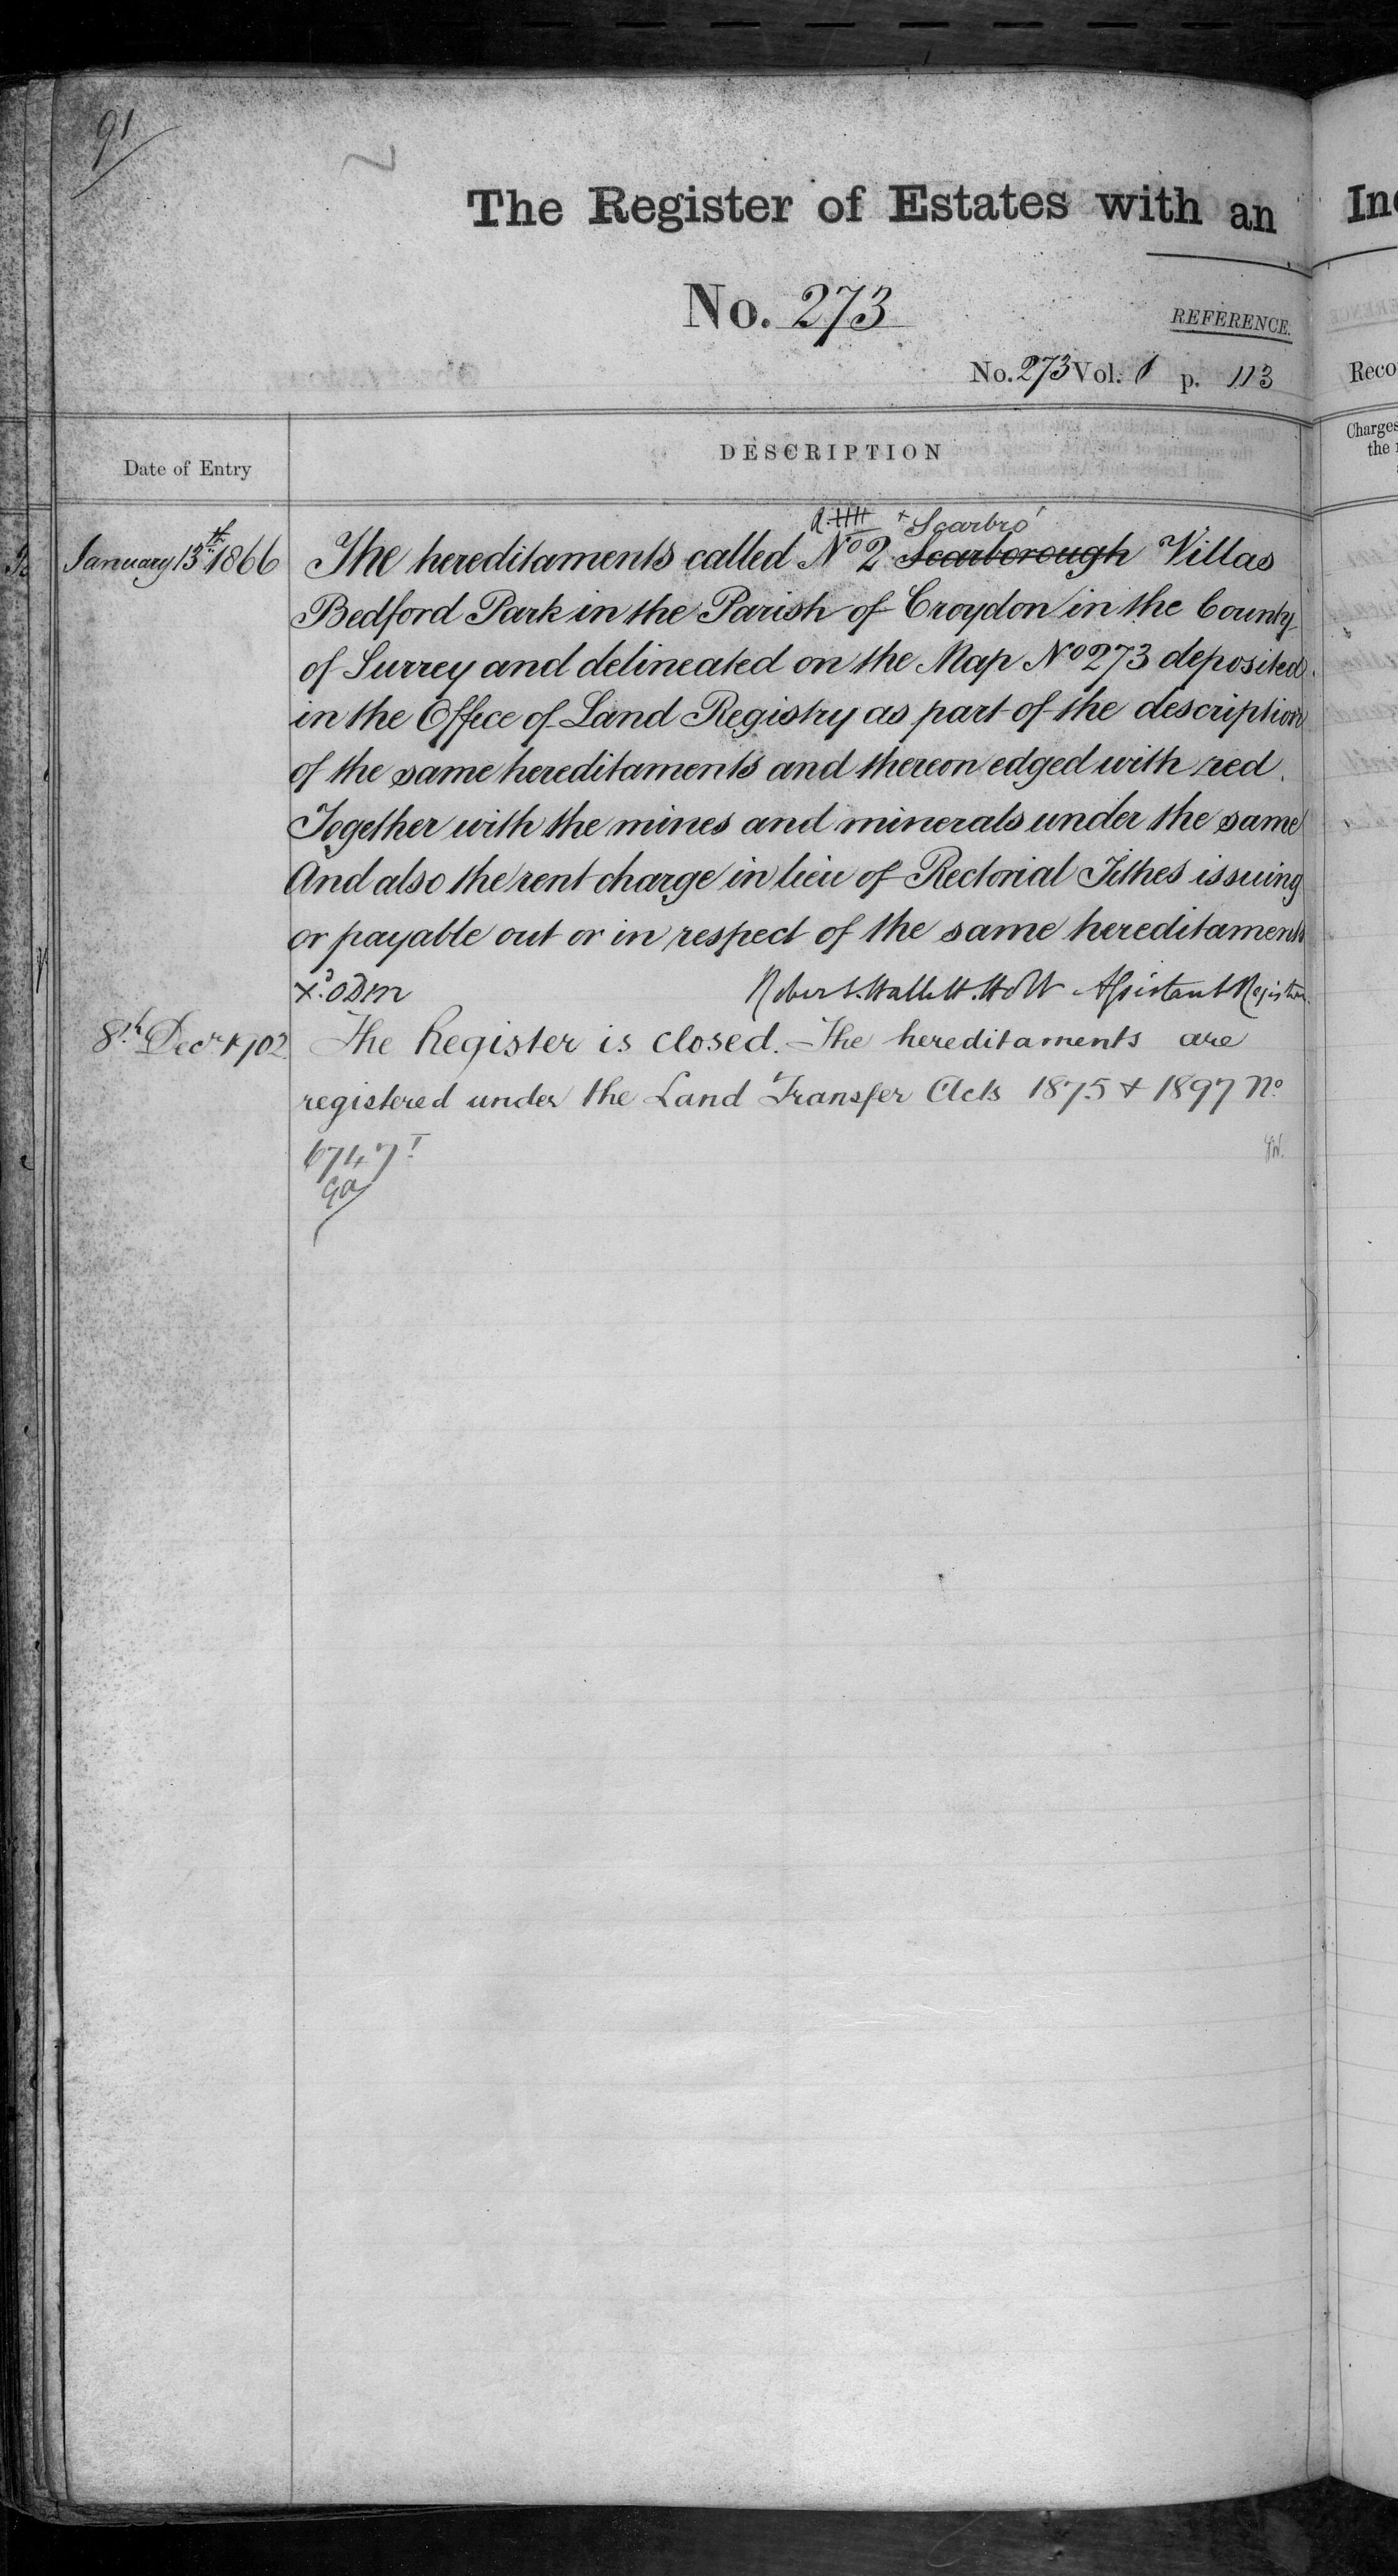 91
The Register of Estates with an
No. 273
REFERENCE.
No. 273 Vol. 1 p. 113
Date of Entry
DESCRIPTION
Scarbro'
January 13th 1866 The hereditaments called No 2 Scarborough Villas
Bedford Park in the Parish of Croydon in the County
of Surrey and delineated on the Map No 273 deposited
in the Office of Land Registry as part of the description
of the same hereditaments and thereon edged with red.
Together with the mines and minerals under the same
And also the rent charge in lieu of Rectorial Tithes issuing
or payable out or in respect of the same hereditaments
Robert Hallett Holt Assistant Registrar
8th Decr 1902 The Register is closed. The hereditaments are
registered under the Land Transfer Acts 1875 & 1897 No
6747
Reco
Charges
the